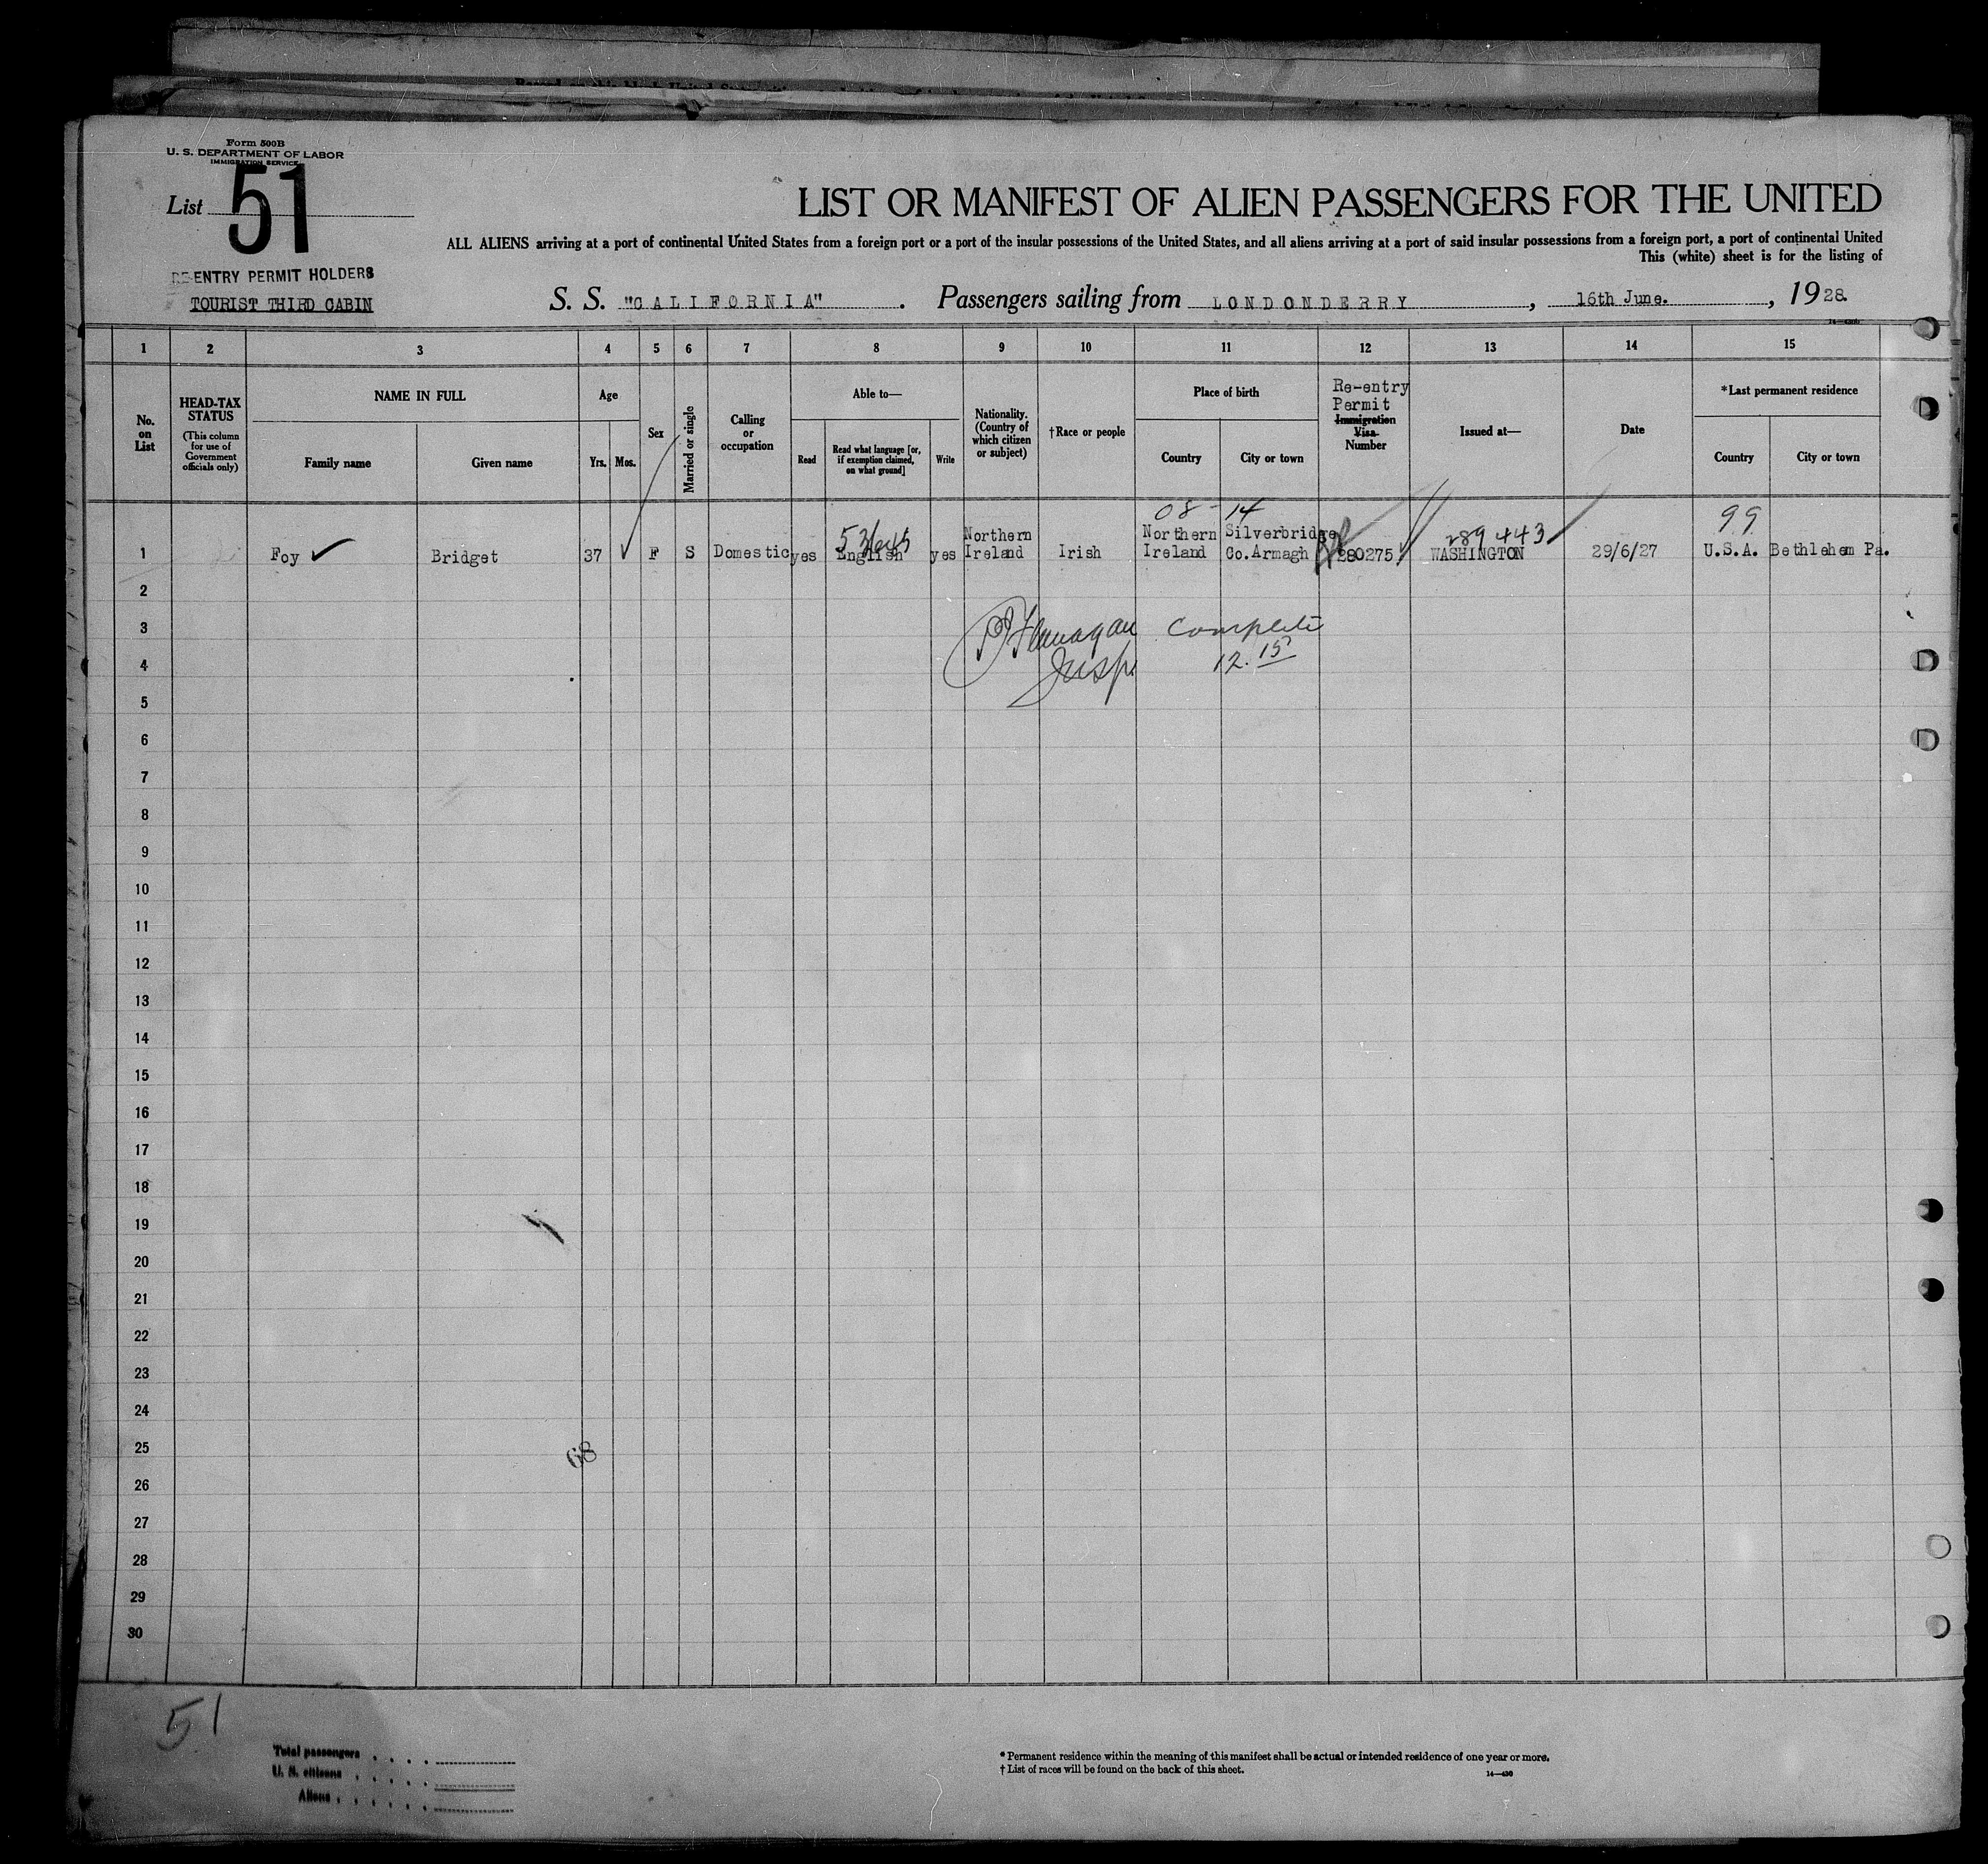 Form 500B
U. S. DEPARTMENT OF LABOR
IMMIGRATION SERVICE
List 51
RE-ENTRY PERMIT HOLDERS
TOURIST THIRD CABIN
LIST OR MANIFEST OF ALIEN PASSENGERS FOR THE UNITED
ALL ALIENS arriving at a port of continental United States from a foreign port or a port of the insular possessions of the United States, and all aliens arriving at a port of said insular possessions from a foreign port, a port of continental United
This (white) sheet is for the listing of
S. S. "CALIFORNIA". Passengers sailing from LONDONDERRY, 16th June., 1928.
1 2 3 4 5 6 7 8 9 10 11 12 13 14 15
No. on List
HEAD-TAX STATUS
(This column for use of Government officials only)
NAME IN FULL
Family name Given name
Age
Yrs. Mos.
Sex
Married or single
Calling or occupation
Able to—
Read
Read what language [or, if exemption claimed, on what ground]
Write
Nationality. (Country of which citizen or subject)
†Race or people
Place of birth
Country City or town
Re-entry Permit
Immigration Visa
Number
Issued at—
Date
*Last permanent residence
Country City or town
08 - 14 99
289443
1 Foy Bridget 37 F S Domestic yes English yes Northern Ireland Irish Northern Ireland Silverbridge Co.Armagh 280275 WASHINGTON 29/6/27 U.S.A. Bethlehem Pa.
2
3 Flanagan Complete
4 Insp. 12.15
5
6
7
8
9
10
11
12
13
14
15
16
17
18
19
20
21
22
23
24
25
68
26
27
28
29
30
51
Total passengers
U. S. citizens
Aliens
* Permanent residence within the meaning of this manifest shall be actual or intended residence of one year or more.
† List of races will be found on the back of this sheet.
14—430